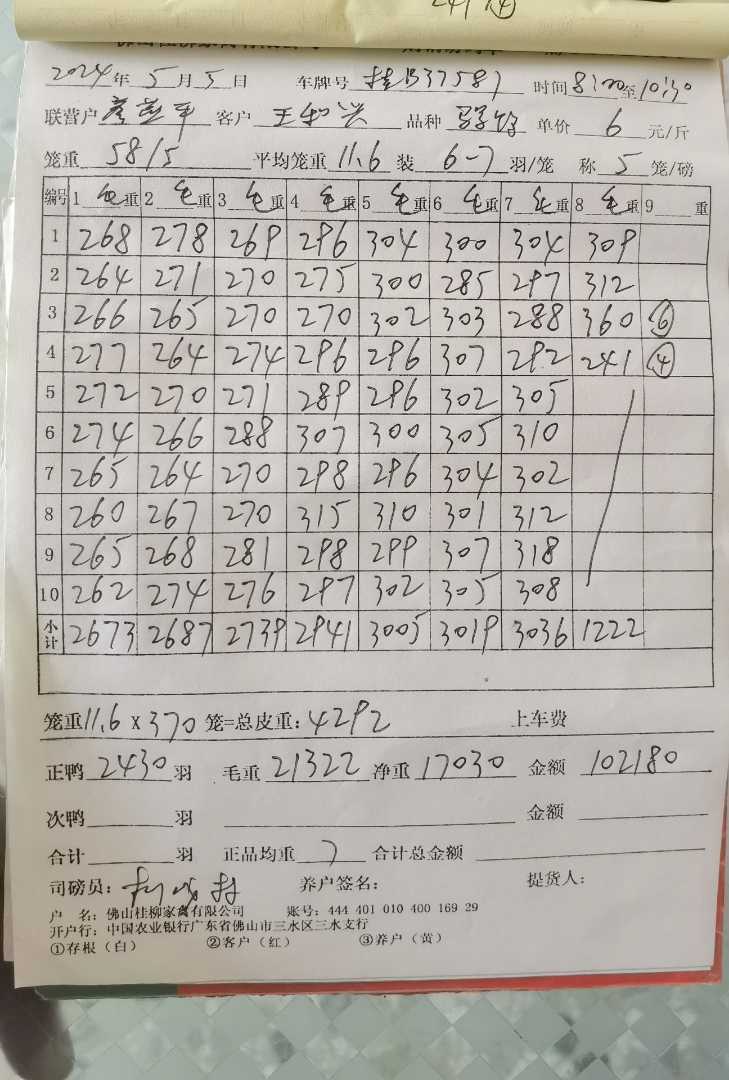 241 ④
2024年 5月 5日 车牌号 桂B37587 时间 8:00至10:30
联营户 客户 王和兴 品种 单价 6 元/斤
笼重 58/5 平均笼重 11.6 装 6-7 羽/笼 称 5 笼/磅
编号 1 毛重 2 毛重 3 毛重 4 毛重 5 毛重 6 毛重 7 毛重 8 毛重 9 重
1 268 278 269 296 304 300 304 309
2 264 271 270 275 300 285 297 312
3 266 265 270 270 302 303 288 360 ⑥
4 277 264 274 296 296 307 292 241 ④
5 272 270 271 289 296 302 305
6 274 266 288 307 300 305 310
7 265 264 270 298 296 304 302
8 260 267 270 315 310 301 312
9 265 268 281 298 299 307 318
10 262 274 276 297 302 305 308
小计 2673 2687 2739 2941 3005 3019 3036 1222
笼重11.6 X 370 笼=总皮重:4292 上车费
正鸭 2430 羽 毛重 21322 净重 17030 金额 102180
次鸭 羽 金额
合计 羽 正品均重 7 合计总金额
司磅员: 养户签名: 提货人:
户 名:佛山桂柳家禽有限公司 账号:444 401 010 400 169 29
开户行:中国农业银行广东省佛山市三水区三水支行
①存根(白) ②客户(红) ③养户(黄)